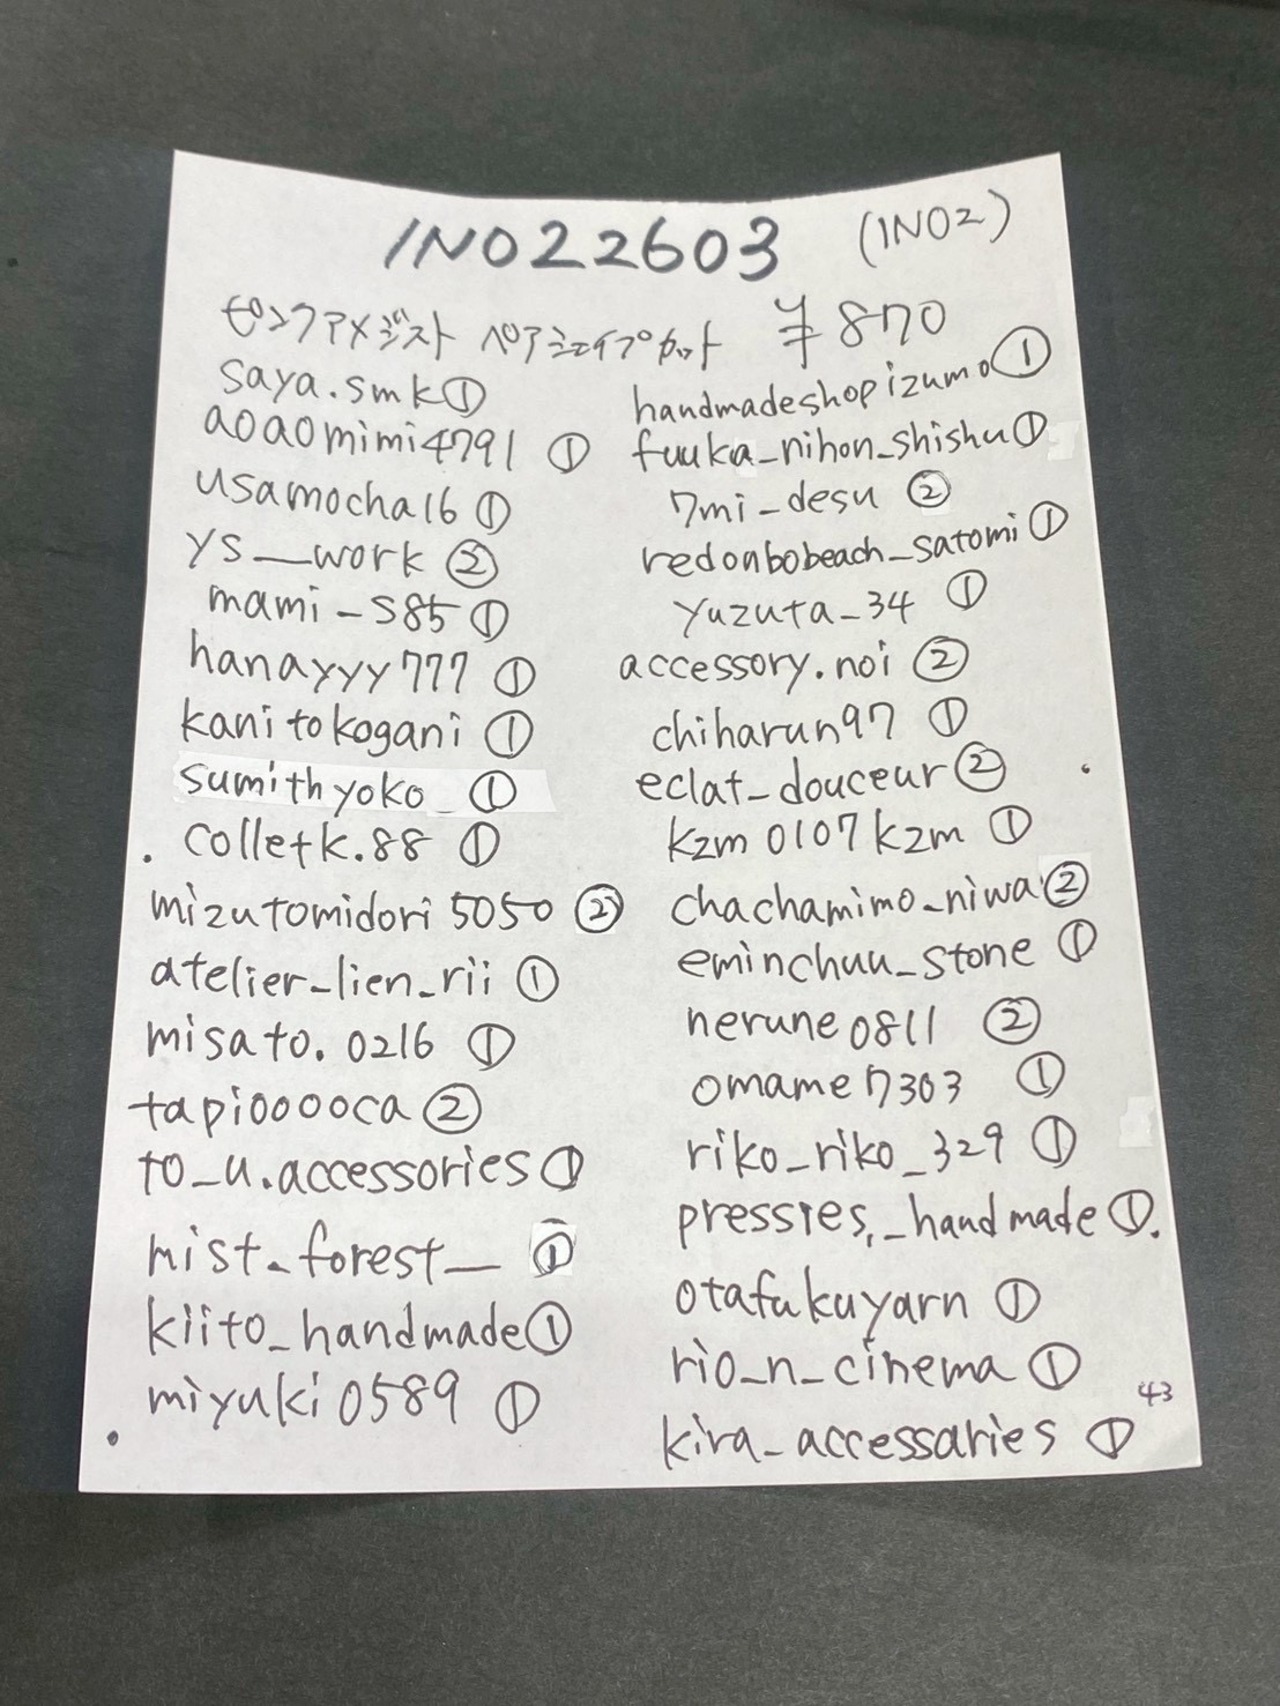 INO22603 (INO2)
ピンクアメジスト ペアシェイプカット ¥870
saya.smk①
aoaomimi4791 ①
usamocha16 ①
ys__work ②
mami_s85 ①
hanayyy777 ①
kanitokogani ①
sumithyoko_ ①
colletk.88 ①
mizutomidori5050 ②
atelier_lien_rii ①
misato.0216 ①
tapiooooca ②
to_u.accessories ①
mist_forest__ ①
kiito_handmade ①
miyuki0589 ①
handmadeshopizumo ①
fuuka_nihon_shishu ①
7mi_desu ②
redonbobeach_satomi ①
yuzuta_34 ①
accessory.noi ②
chiharun97 ①
eclat_douceur ②
kzm0107kzm ①
chachamimo_niwa ②
eminchuu_stone ①
nerune0811 ②
omame7303 ①
riko_riko_329 ①
pressies._handmade ①
otafukuyarn ①
rio_n_cinema ①
kira_accessaries ①
43